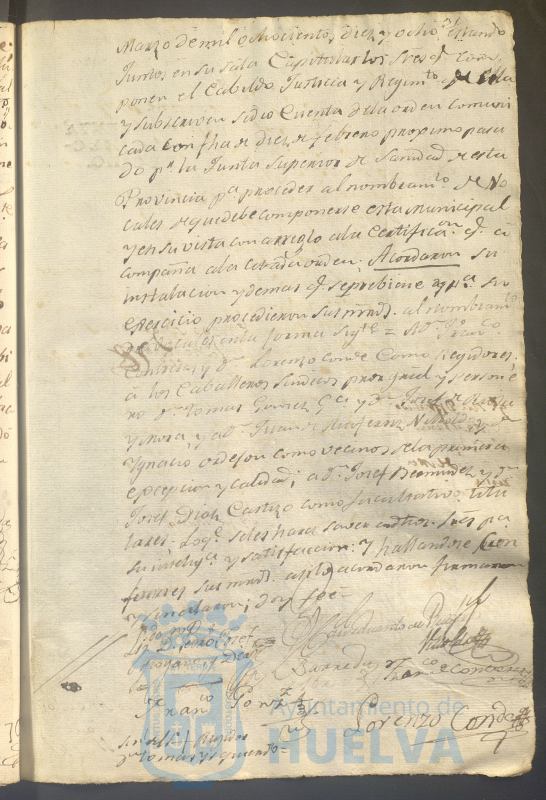 Marzo de mil ochocientos diez y ocho estando
Juntos en su sala Capitular los Sres. q. com
ponen el Cabildo Justicia y Regimto. de ella
y subscriven se dio cuenta de la orden comuni
cada con fha de diez de febrero proximo pasa
do pr. la Junta Superior de Sanidad de esta
Provincia pa. proceder al nombramto. de Vo
cales de que debe componerse esta Municipal
y en su vista con arreglo a la Certificaon. q. a
compaña a la citada orden: Acordaron su
instalacion y demas q. se prebiene y pa. su
exercicio procedieron sus mrds. al nombramto
de vocales en la forma sigte. = A Dn. Franco
Contreras y Dn. Lorenzo Conde como Regidores;
a los Caballeros Sindicos proral. gral y person
ro Dn. Tomas Gomez Ga. y Dn. Josef de la
y Mora, y a Dn. Juan y Dn.
Ignacio Ordejon como vecinos de la primera
excepcion y calidad; a Dn. Josef Bermudez y Dn.
Josef Diaz Castizo como facultativos titu
lares. Lo qe. se les hara saver a dhos. Sres. pa.
su inteliga. y satisfaccion: Y hallandose con
formes sus mrds. asi lo acordaron firmaron
y señalaron; doy fee =
Eduardo de
Barreda
Franco Contreras
Franco Gonz
Lorenzo Conde
Ayuntamiento de
HUELVA